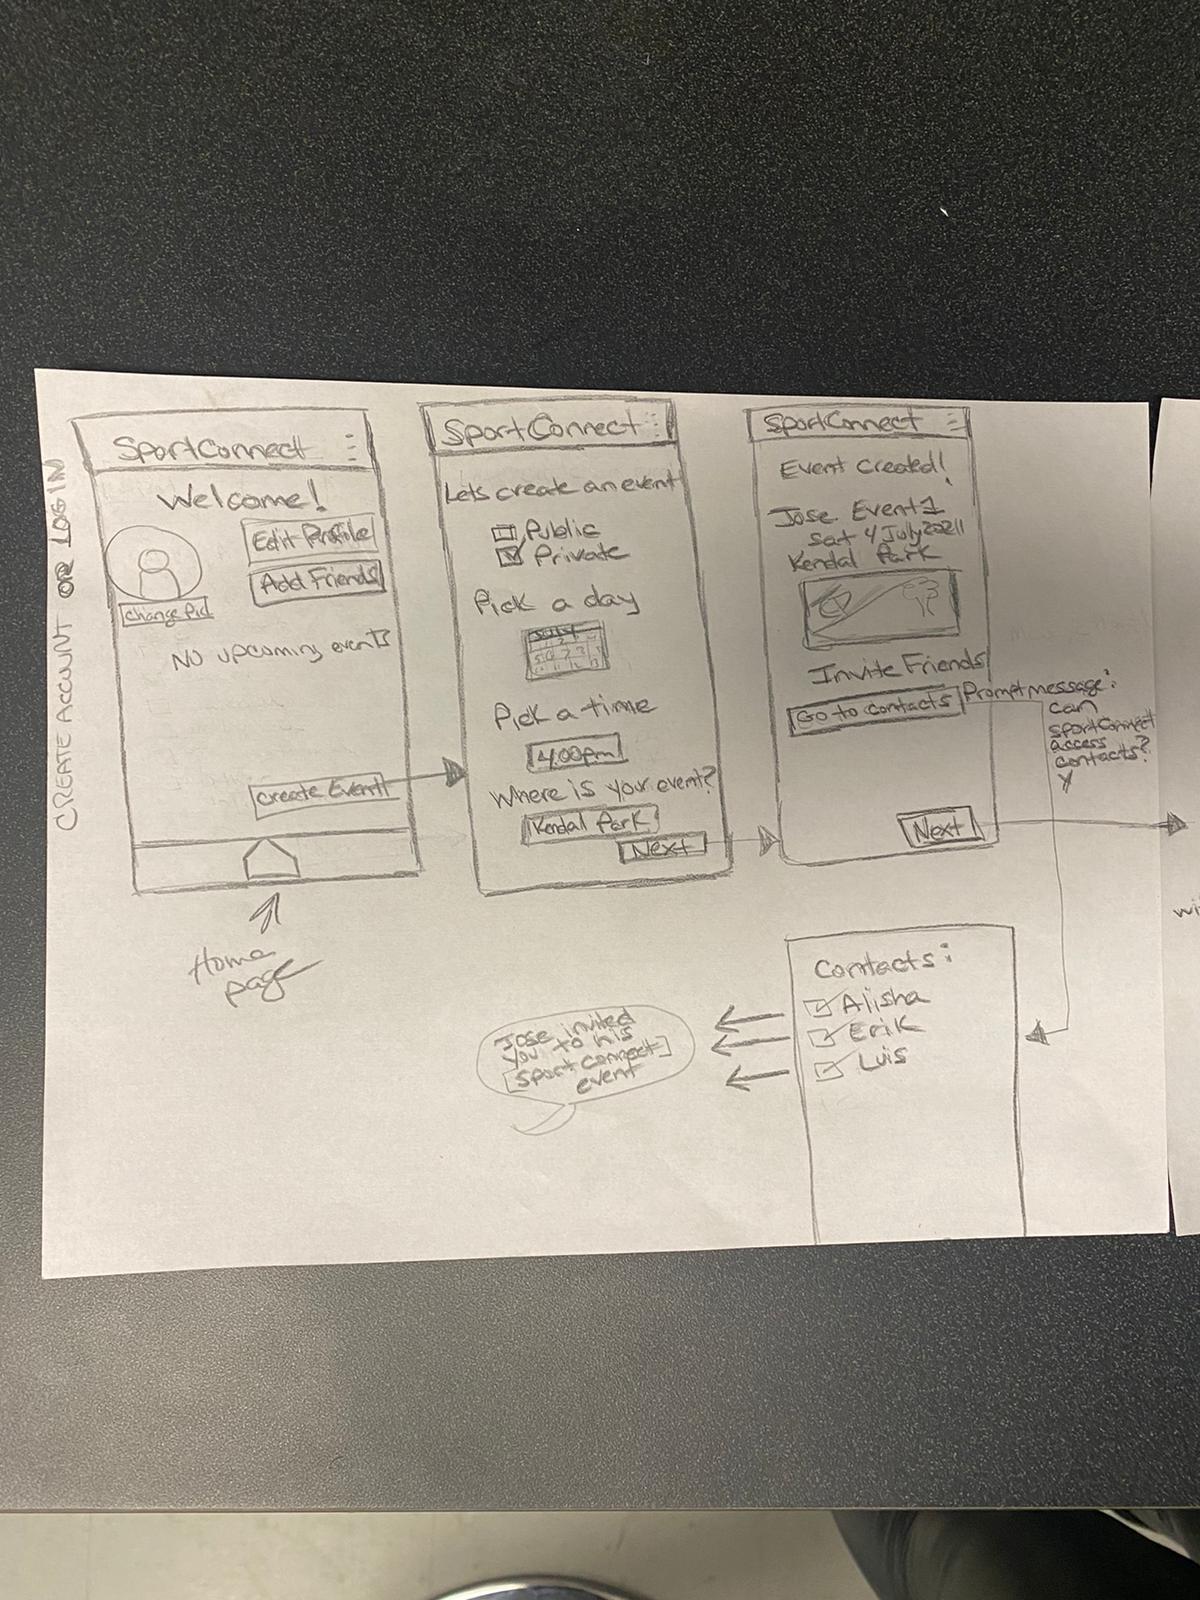 CREATE ACCOUNT OR LOGIN
SportConnect
Welcome!
Edit Profile
Add Friends
Change Pic
No upcoming events
Create Event
Home
page
SportConnect
Lets create an event
Public
Private
Pick a day
Pick a time
4:00pm
Where is your event?
Kendal Park
Next
SportConnect
Event Created!
Jose Event 1
Sat 4 July
Kendal Park
Invite Friends
Go to contacts
Prompt message:
can
sportConnect
access
contacts?
y
Next
Contacts:
Alisha
Erik
Luis
Jose invited
you to his
[Sport connect]
event